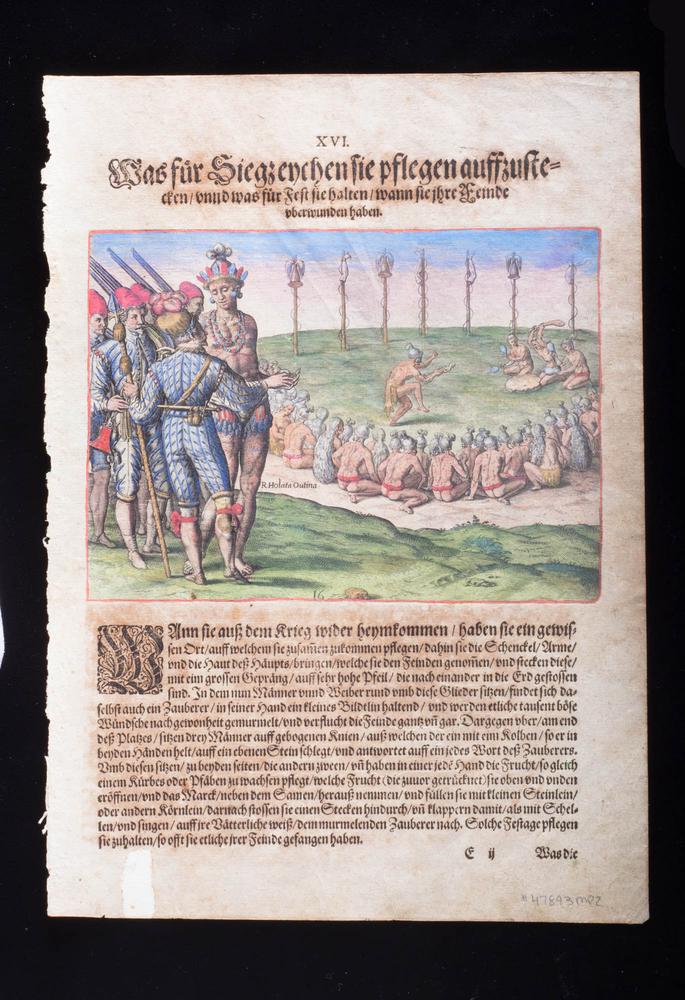 XVI.
Was für Siegzeychen sie pflegen auffzuste-
cken / vnnd was für Fest sie halten / wann sie jhre Feinde
vberwunden haben.
R. Holata Outina
16
WAnn sie auß dem Krieg wider heymkommen / haben sie ein gewis-
sen Ort / auff welchem sie zusam̃en zukommen pflegen / dahin sie die Schenckel / Arme /
vnd die Haut deß Häupts / bringen / welche sie den Feinden genom̃en / vnd stecken diese /
mit eim grossen Gepräng / auff sehr hohe Pfeil / die nach einander in die Erd gestossen
sind. In dem nun Männer vnnd Weiber rund vmb diese Glieder sitzen / findet sich da-
selbst auch ein Zauberer / in seiner Hand ein kleines Bildtlin haltend / vnd werden etliche tausent böse
Wündsche nach gewonheit gemurmelt / vnd verflucht die Feinde gantz vñ gar. Dargegen vber / am end
deß Platzes / sitzen drey Männer auff gebogenen Knien / auß welchen der ein mit eim Kolben / so er in
beyden Händen helt / auff ein ebenen Stein schlegt / vnd antwortet auff ein jedes Wort deß Zauberers.
Vmb diesen sitzen / zu beyden seiten / die andern zween / vñ haben in einer jedẽ Hand die Frucht / so gleich
einem Kürbes oder Pfäben zu wachsen pflegt / welche Frucht (die zuuor getrücknet) sie oben vnd vnden
eröffnen / vnd das Marck / neben dem Samen / herauß nemmen / vnd füllen sie mit kleinen Steinlein /
oder andern Körnlein / darnach stossen sie einen Stecken hindurch / vñ klappern damit / als mit Schel-
len / vnd singen / auff jre Vätterliche weiß / dem murmelenden Zauberer nach. Solche Festage pflegen
sie zuhalten / so offt sie etliche jrer Feinde gefangen haben.
E ij Was die
#47893MP2